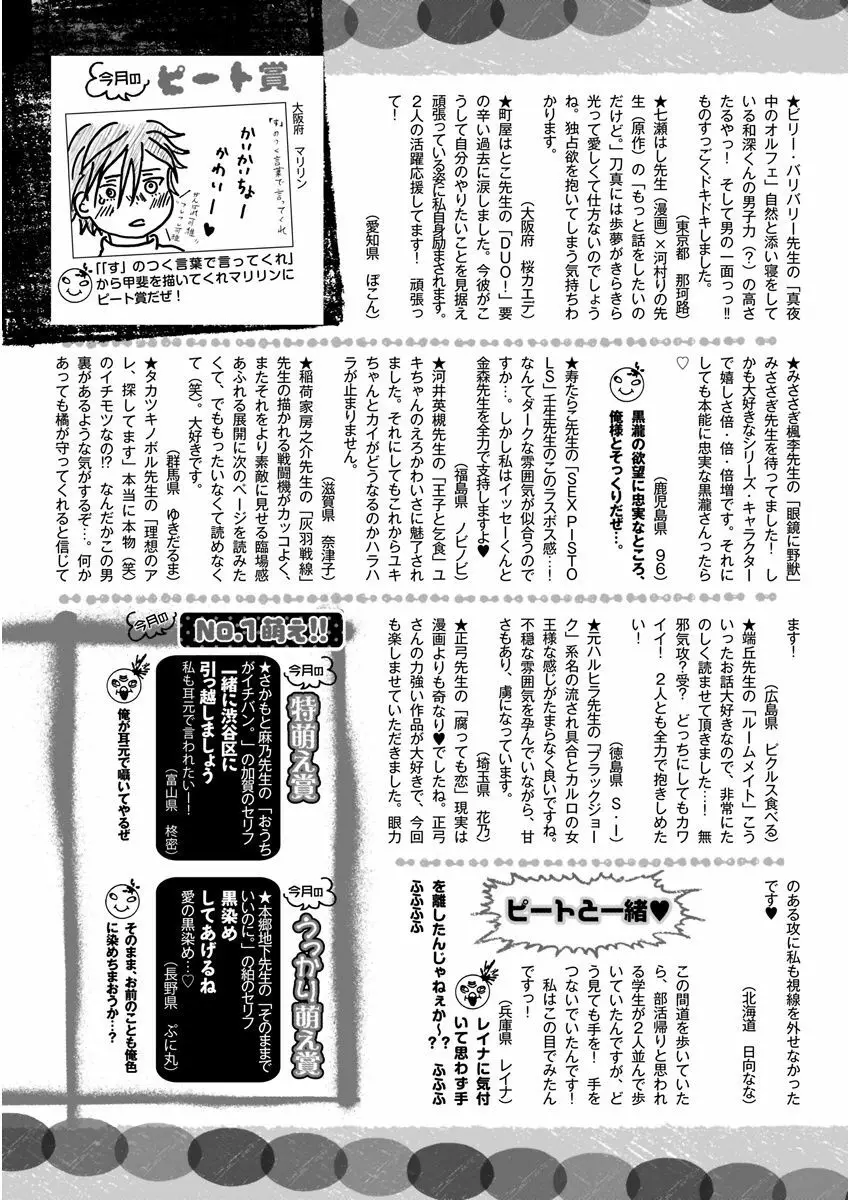 ★ビリー・バリバリー先生の「真夜
中のオルフェ」自然と添い寝をして
いる和深くんの男子力（？）の高さ
たるやっ！　そして男の一面っっ!!
ものすっごくドキドキしました。
（東京都　那珂路）
★七瀬はし先生（漫画）×河村りの先
生（原作）の「もっと話をしたいの
だけど。」刀真には歩夢がきらきら
光って愛しくて仕方ないのでしょう
ね。独占欲を抱いてしまう気持ちわ
かります。
（大阪府　桜カエデ）
★町屋はとこ先生の「ＤＵＯ！」要
の辛い過去に涙しました。今彼がこ
うして自分のやりたいことを見据え
頑張っている姿に私自身励まされます。
２人の活躍応援してます！　頑張っ
て！
（愛知県　ぽこん）
今月の
ピート賞
大阪府　マリリン
「す」のつく言葉で言ってくれ
かいかいちょー
かわいー♥
「「す」のつく言葉で言ってくれ」
から甲斐を描いてくれマリリンに
ピート賞だぜ！
★みささぎ楓李先生の「眼鏡に野獣」
みささぎ先生を待ってました！　し
かも大好きなシリーズ・キャラクター
で嬉しさ倍・倍・倍増です。それに
しても本能に忠実な黒瀧さんったら
♡
（鹿児島県　９６）
黒瀧の欲望に忠実なところ、
俺様とそっくりだぜ…。
★寿たらこ先生の「ＳＥＸ ＰＩＳＴＯ
ＬＳ」壬生先生のこのラスボス感…！
なんてダークな雰囲気が似合うので
すか…。しかし私はイッセーくんと
金森先生を全力で支持しますよ♥
（福島県　ノビノビ）
★河井英槻先生の「王子と乞食」ユ
キちゃんのえろかわいさに魅了され
ました。それにしてもこれからユキ
ちゃんとカイがどうなるのかハラハ
ラが止まりません。
（滋賀県　奈津子）
★稲荷家房之介先生の「灰羽戦線」
先生の描かれる戦闘機がカッコよく、
またそれをより素敵に見せる臨場感
あふれる展開に次のページを読みた
くて、でももったいなくて読めなく
て（笑）。大好きです。
（群馬県　ゆきだるま）
★タカツキノボル先生の「理想のア
レ、探してます」本当に本物（笑）
のイチモツなの!?　なんだかこの男
裏があるような気がするぞ…。何か
あっても橘が守ってくれると信じて
ます！
（広島県　ピクルス食べる）
★端丘先生の「ルームメイト」こう
いったお話大好きなので、非常にた
のしく読ませて頂きました…！　無
邪気攻？受？　どっちにしてもカワ
イイ！　２人とも全力で抱きしめた
い！
（徳島県　Ｓ・Ｉ）
★元ハルヒラ先生の「ブラックジョー
ク」系名の流され具合とカルロの女
王様な感じがたまらなく良いですね。
不穏な雰囲気を孕んでいながら、甘
さもあり、虜になっています。
（埼玉県　花乃）
★正弓先生の「腐っても恋」現実は
漫画よりも奇なり♥でしたね。正弓
さんの力強い作品が大好きで、今回
も楽しませていただきました。眼力
のある攻に私も視線を外せなかった
です♥
（北海道　日向なな）
ピートと一緒♥
この間道を歩いていた
ら、部活帰りと思われ
る学生が２人並んで歩
いていたんですが、ど
う見ても手を！　手を
つないでいたんです！
私はこの目でみたん
ですっ！
（兵庫県　レイナ）
レイナに気付
いて思わず手
を離したんじゃねぇか〜？　ふふふ
ふふふふ
今月の
No.1萌え!!
今月の
特萌え賞
★さかもと麻乃先生の「おうち
がイチバン。」の加賀のセリフ
一緒に渋谷区に
引っ越しましょう
私も耳元で言われたいー！
（富山県　柊密）
俺が耳元で囁いてやるぜ
今月の
うっかり萌え賞
★本郷地下先生の「そのままで
いいのに。」の絽のセリフ
黒染め
してあげるね
愛の黒染め…♡
（長野県　ぷに丸）
そのまま、お前のことも俺色
に染めちまおうか…？